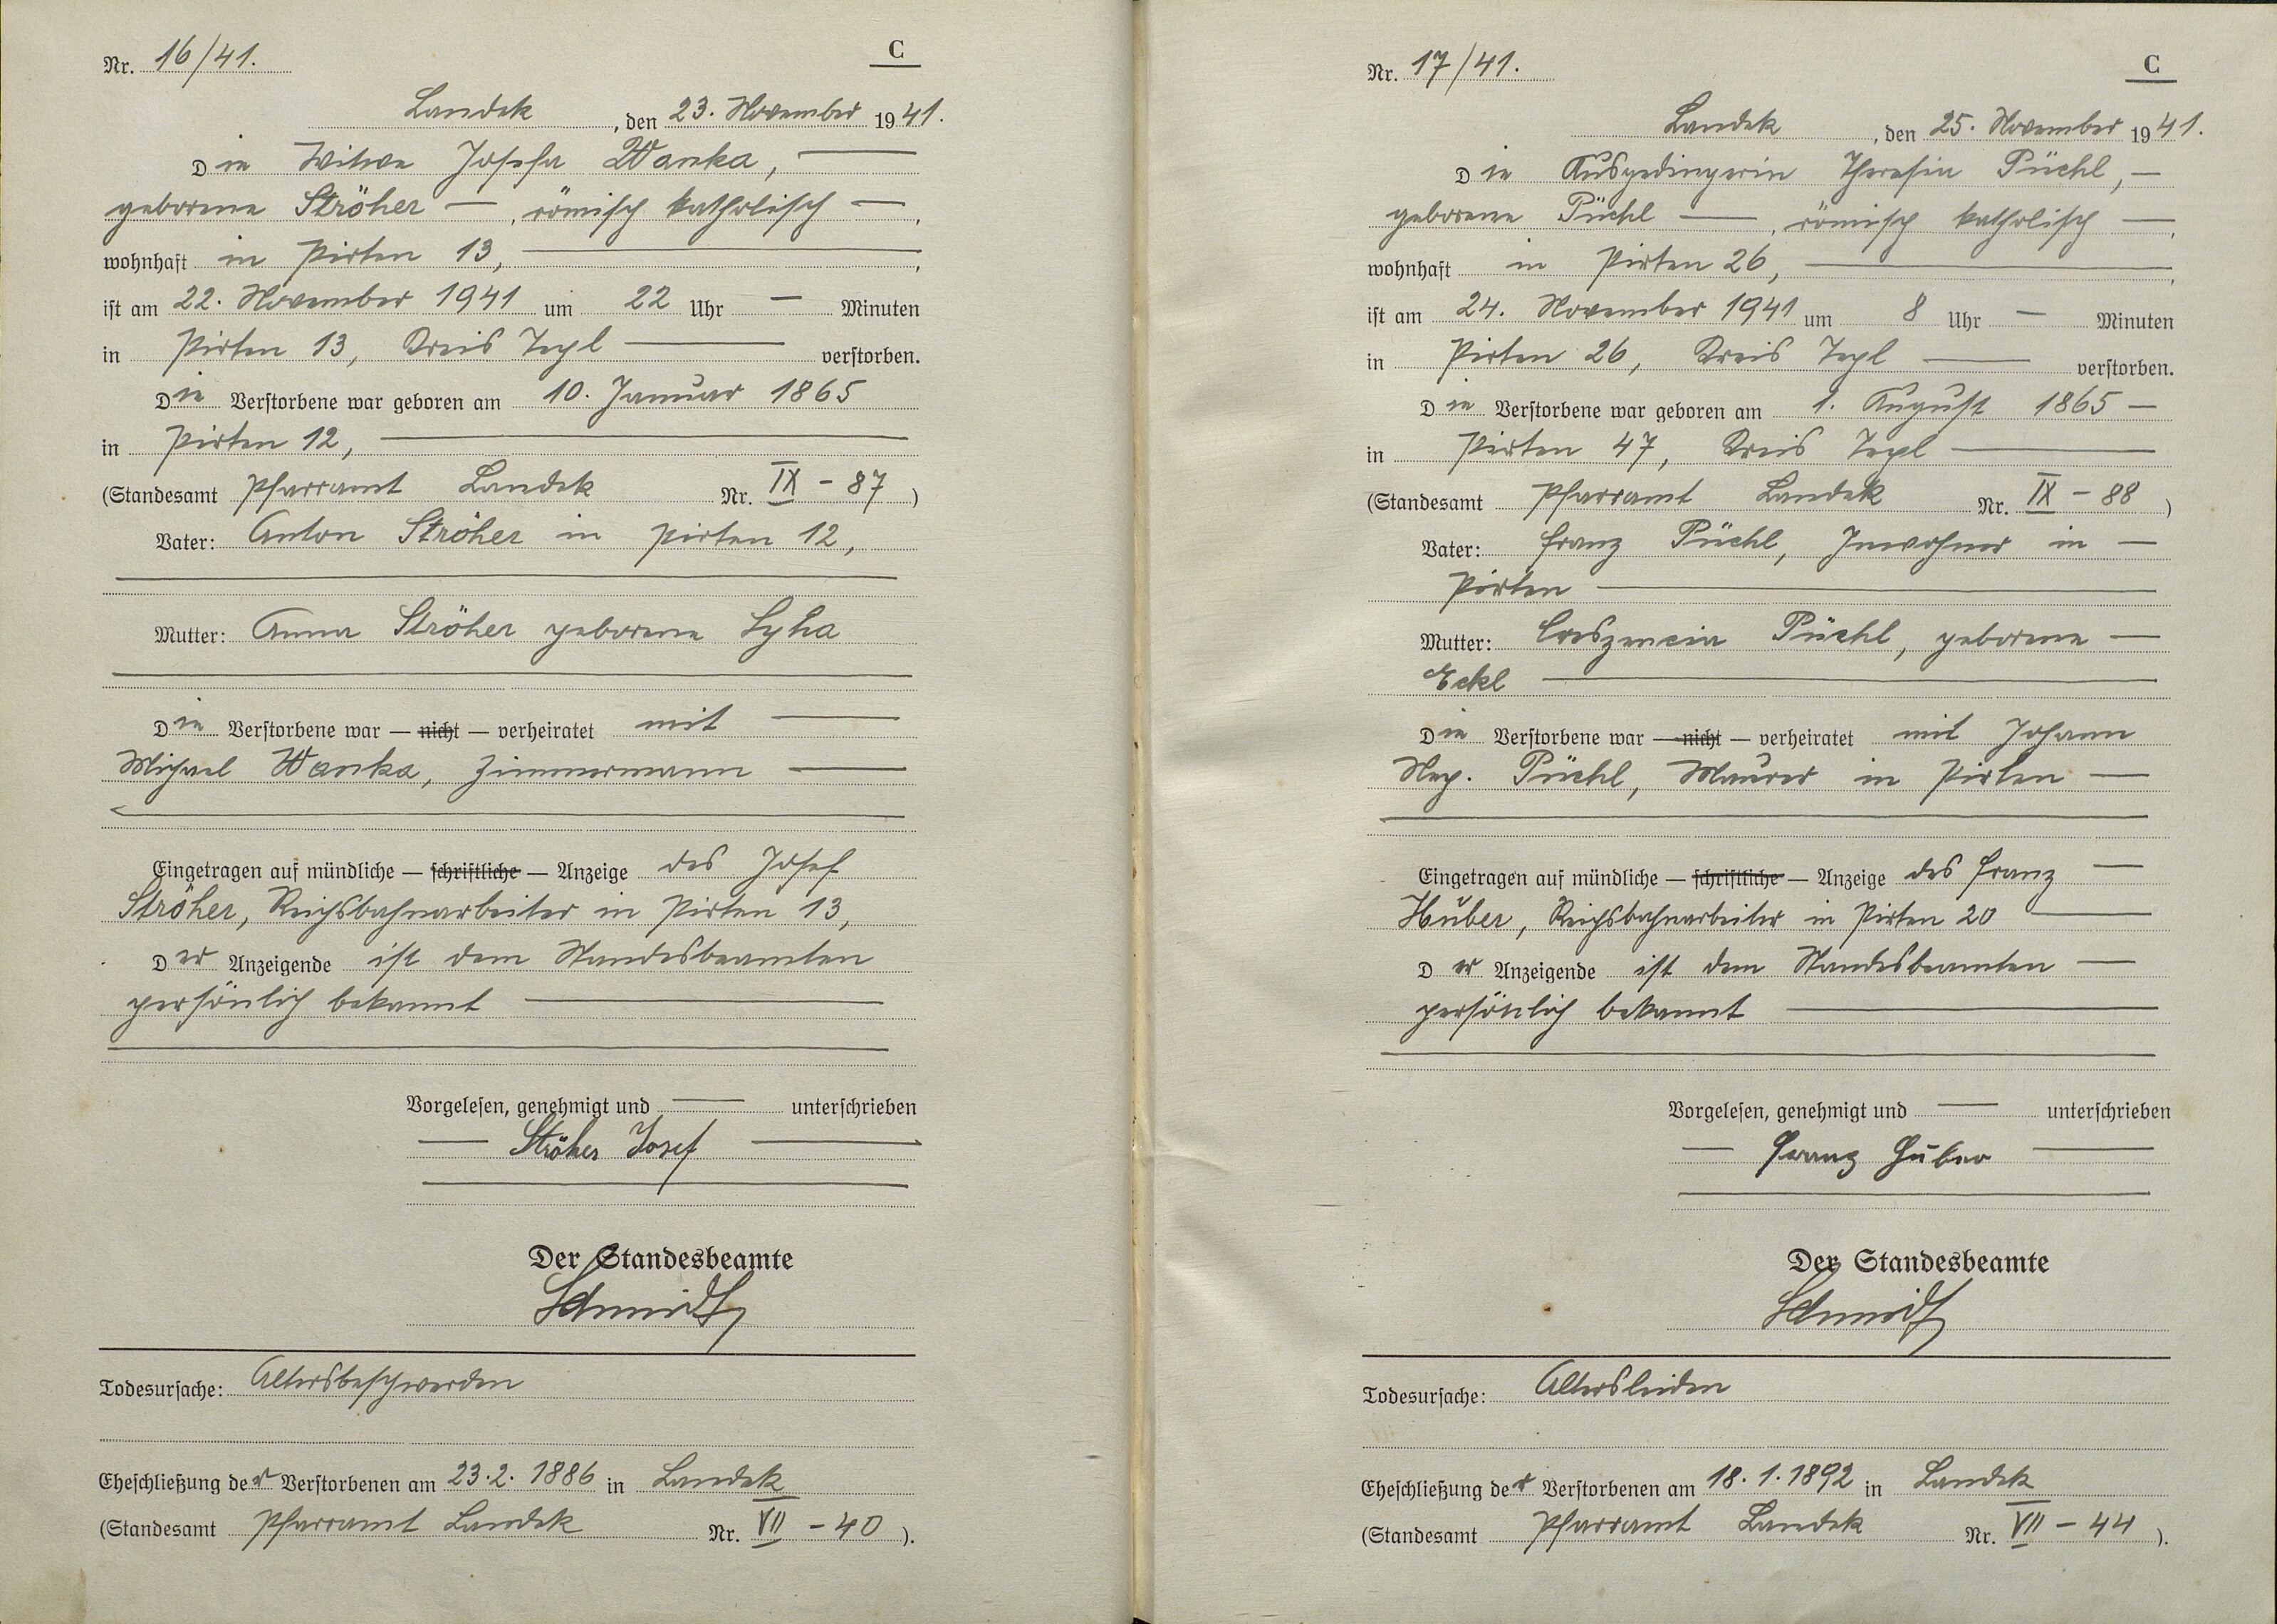 Nr. 16/41.
C
Landek, den 23. November 1941.
Die Witwe Josefa Wanka, —
geborene Ströher —, römisch katholisch —,
wohnhaft in Pirten 13, —,
ist am 22. November 1941 um 22 Uhr — Minuten
in Pirten 13, Kreis Tepl — verstorben.
Die Verstorbene war geboren am 10. Januar 1865
in Pirten 12, —
(Standesamt Pfarramt Landek Nr. IX - 87)
Vater: Anton Ströher in Pirten 12,
Mutter: Anna Ströher geborene Lyha
Die Verstorbene war — nicht — verheiratet mit —
Michael Wanka, Zimmermann —
Eingetragen auf mündliche — schriftliche — Anzeige des Josef
Ströher, Reichsbahnarbeiter in Pirten 13,
Der Anzeigende ist dem Standesbeamten
persönlich bekannt —
Vorgelesen, genehmigt und — unterschrieben
— Ströher Josef —
Der Standesbeamte
Schmidt
Todesursache: Altersbeschwerden
Eheschließung der Verstorbenen am 23.2.1886 in Landek
(Standesamt Pfarramt Landek Nr. VII - 40).
Nr. 17/41.
C
Landek, den 25. November 1941.
Die Ausgedingerin Theresia Püchl, —
geborene Püchl —, römisch katholisch —,
wohnhaft in Pirten 26, —,
ist am 24. November 1941 um 8 Uhr — Minuten
in Pirten 26, Kreis Tepl — verstorben.
Die Verstorbene war geboren am 1. August 1865 —
in Pirten 47, Kreis Tepl —
(Standesamt Pfarramt Landek Nr. IX - 88)
Vater: Franz Püchl, Inwohner in —
Pirten —
Mutter: Creszencia Püchl, geborene —
Eckl —
Die Verstorbene war — nicht — verheiratet mit Johann
Nep. Püchl, Maurer in Pirten —
Eingetragen auf mündliche — schriftliche — Anzeige des Franz —
Huber, Reichsbahnarbeiter in Pirten 20 —
Der Anzeigende ist dem Standesbeamten —
persönlich bekannt —
Vorgelesen, genehmigt und — unterschrieben
— Franz Huber —
Der Standesbeamte
Schmidt
Todesursache: Altersleiden
Eheschließung der Verstorbenen am 18.1.1892 in Landek
(Standesamt Pfarramt Landek Nr. VII - 44).